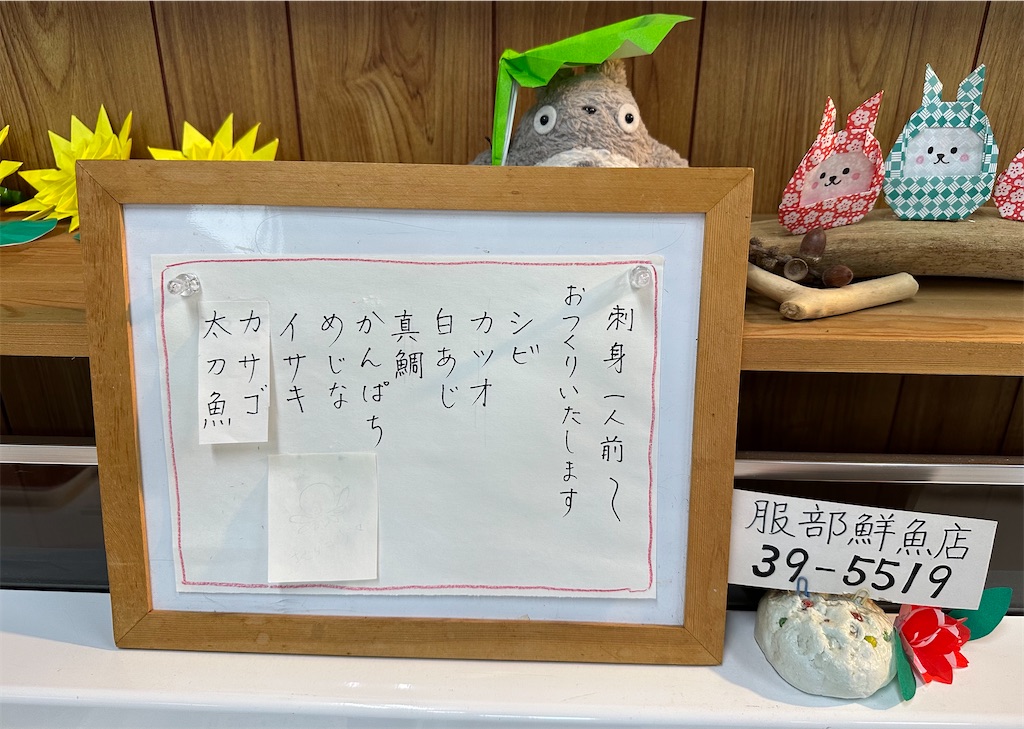 刺身一人前〜
おつくりいたします
シビ
カツオ
白あじ
真鯛
かんぱち
めじな
イサキ
カサゴ
太刀魚
服部鮮魚店
39-5519